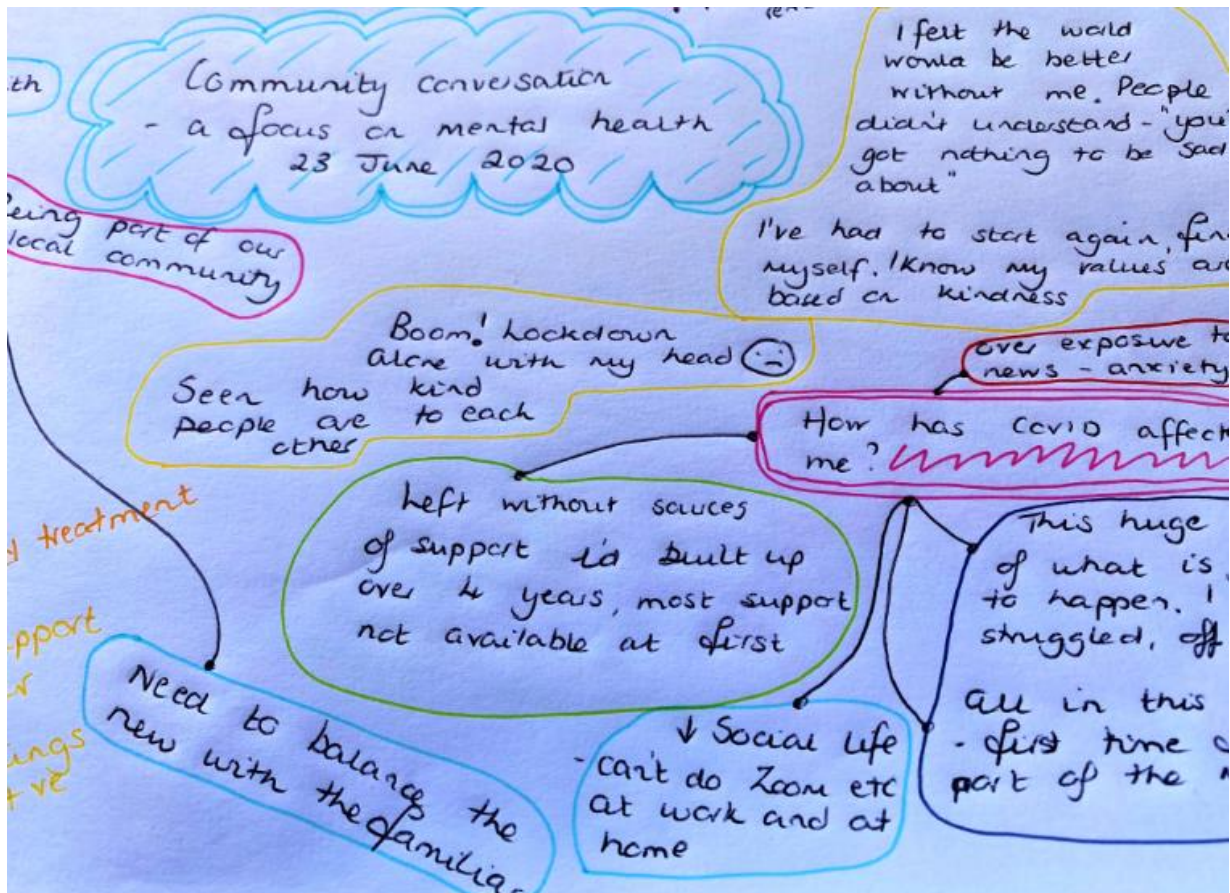 Community conversation
- a focus on mental health
23 June 2020
I felt the world
would be better
without me. People
didn't understand - "you'
got nothing to be sad
about"
I've had to start again,
myself. I know my values
based on kindness
Being part of our
local community
Boom! Lockdown
alone with my head
Seen how kind
people are to each
other
over exposure to
news - anxiety
How has covid affect
me?
Left without sources
of support I'd built up
over 4 years, most support
not available at first
This huge
of what is
to happen. I
struggled, off
All in this
- first time
part of the
treatment
Need to balance the
new with the familia
↓ Social life
- can't do Zoom etc
at work and at
home